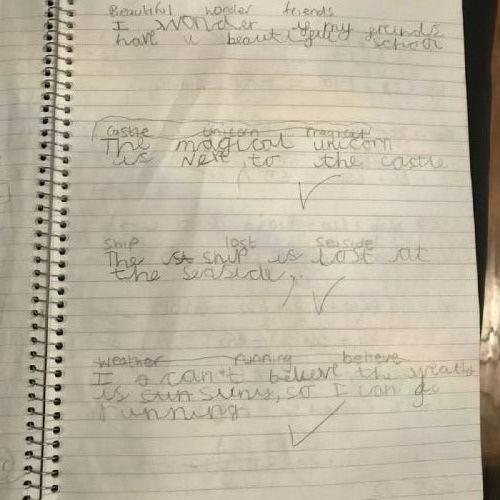 Beautiful wonder friends
I wonder if my friends
have a beautiful school
castle unicorn magical
The magical unicorn
is Next to the castle
ship lost seaside
The st ship is lost at
the seaside.
weather running believe
I can't believe the weath
is sun suny, so I can go
running